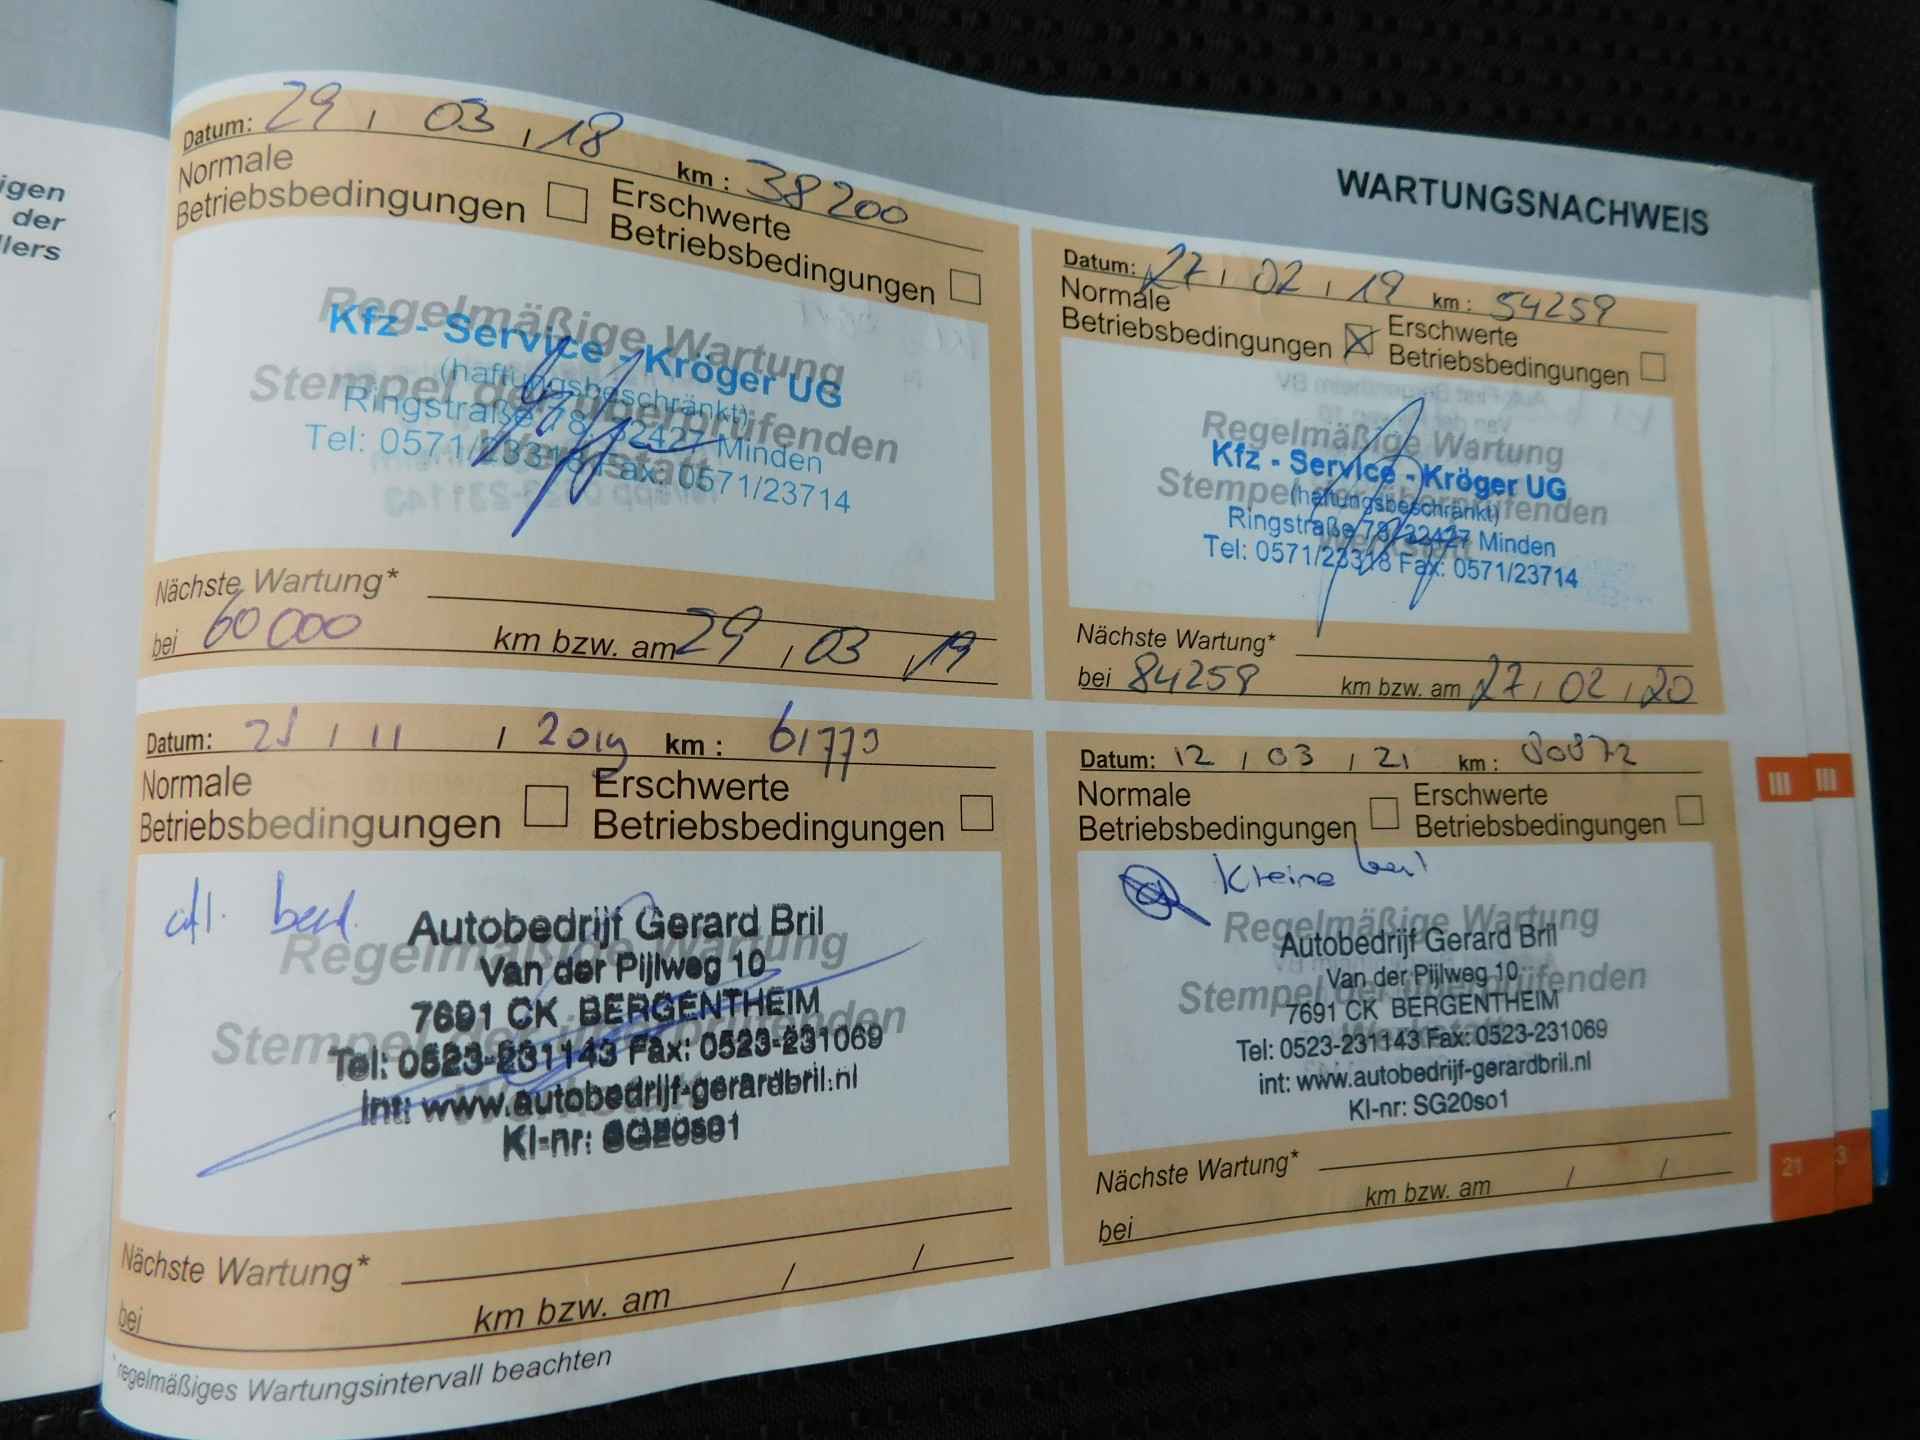 igen
der
llers
WARTUNGSNACHWEIS
Datum: 29 / 03 / 18 km : 38200
Normale Betriebsbedingungen
Erschwerte Betriebsbedingungen
Regelmäßige Wartung
Stempel der überprüfenden
Werkstatt
Kfz - Service - Kröger UG
(haftungsbeschränkt)
Ringstraße 78 / 32427 Minden
Tel: 0571/23318 Fax: 0571/23714
Nächste Wartung*
bei 60000 km bzw. am 29 / 03 / 19
Datum: 27 / 02 / 19 km : 54259
Normale Betriebsbedingungen
Erschwerte Betriebsbedingungen
Regelmäßige Wartung
Stempel der überprüfenden
Werkstatt
Kfz - Service - Kröger UG
(haftungsbeschränkt)
Ringstraße 78 / 32427 Minden
Tel: 0571/23318 Fax: 0571/23714
Nächste Wartung*
bei 84259 km bzw. am 27 / 02 / 20
Datum: / 11 / 2019 km :
Normale Betriebsbedingungen
Erschwerte Betriebsbedingungen
Regelmäßige Wartung
Stempel der überprüfenden
Werkstatt
Autobedrijf Gerard Bril
Van der Pijlweg 10
7691 CK BERGENTHEIM
Tel: 0523-231143 Fax: 0523-231069
int: www.autobedrijf-gerardbril.nl
KI-nr: SG20so1
Nächste Wartung*
bei km bzw. am / /
Datum: 12 / 03 / 21 km : 80872
Normale Betriebsbedingungen
Erschwerte Betriebsbedingungen
Kleine
Regelmäßige Wartung
Stempel der überprüfenden
Werkstatt
Autobedrijf Gerard Bril
Van der Pijlweg 10
7691 CK BERGENTHEIM
Tel: 0523-231143 Fax: 0523-231069
int: www.autobedrijf-gerardbril.nl
KI-nr: SG20so1
Nächste Wartung*
bei km bzw. am / /
*regelmäßiges Wartungsintervall beachten
III III
21 3